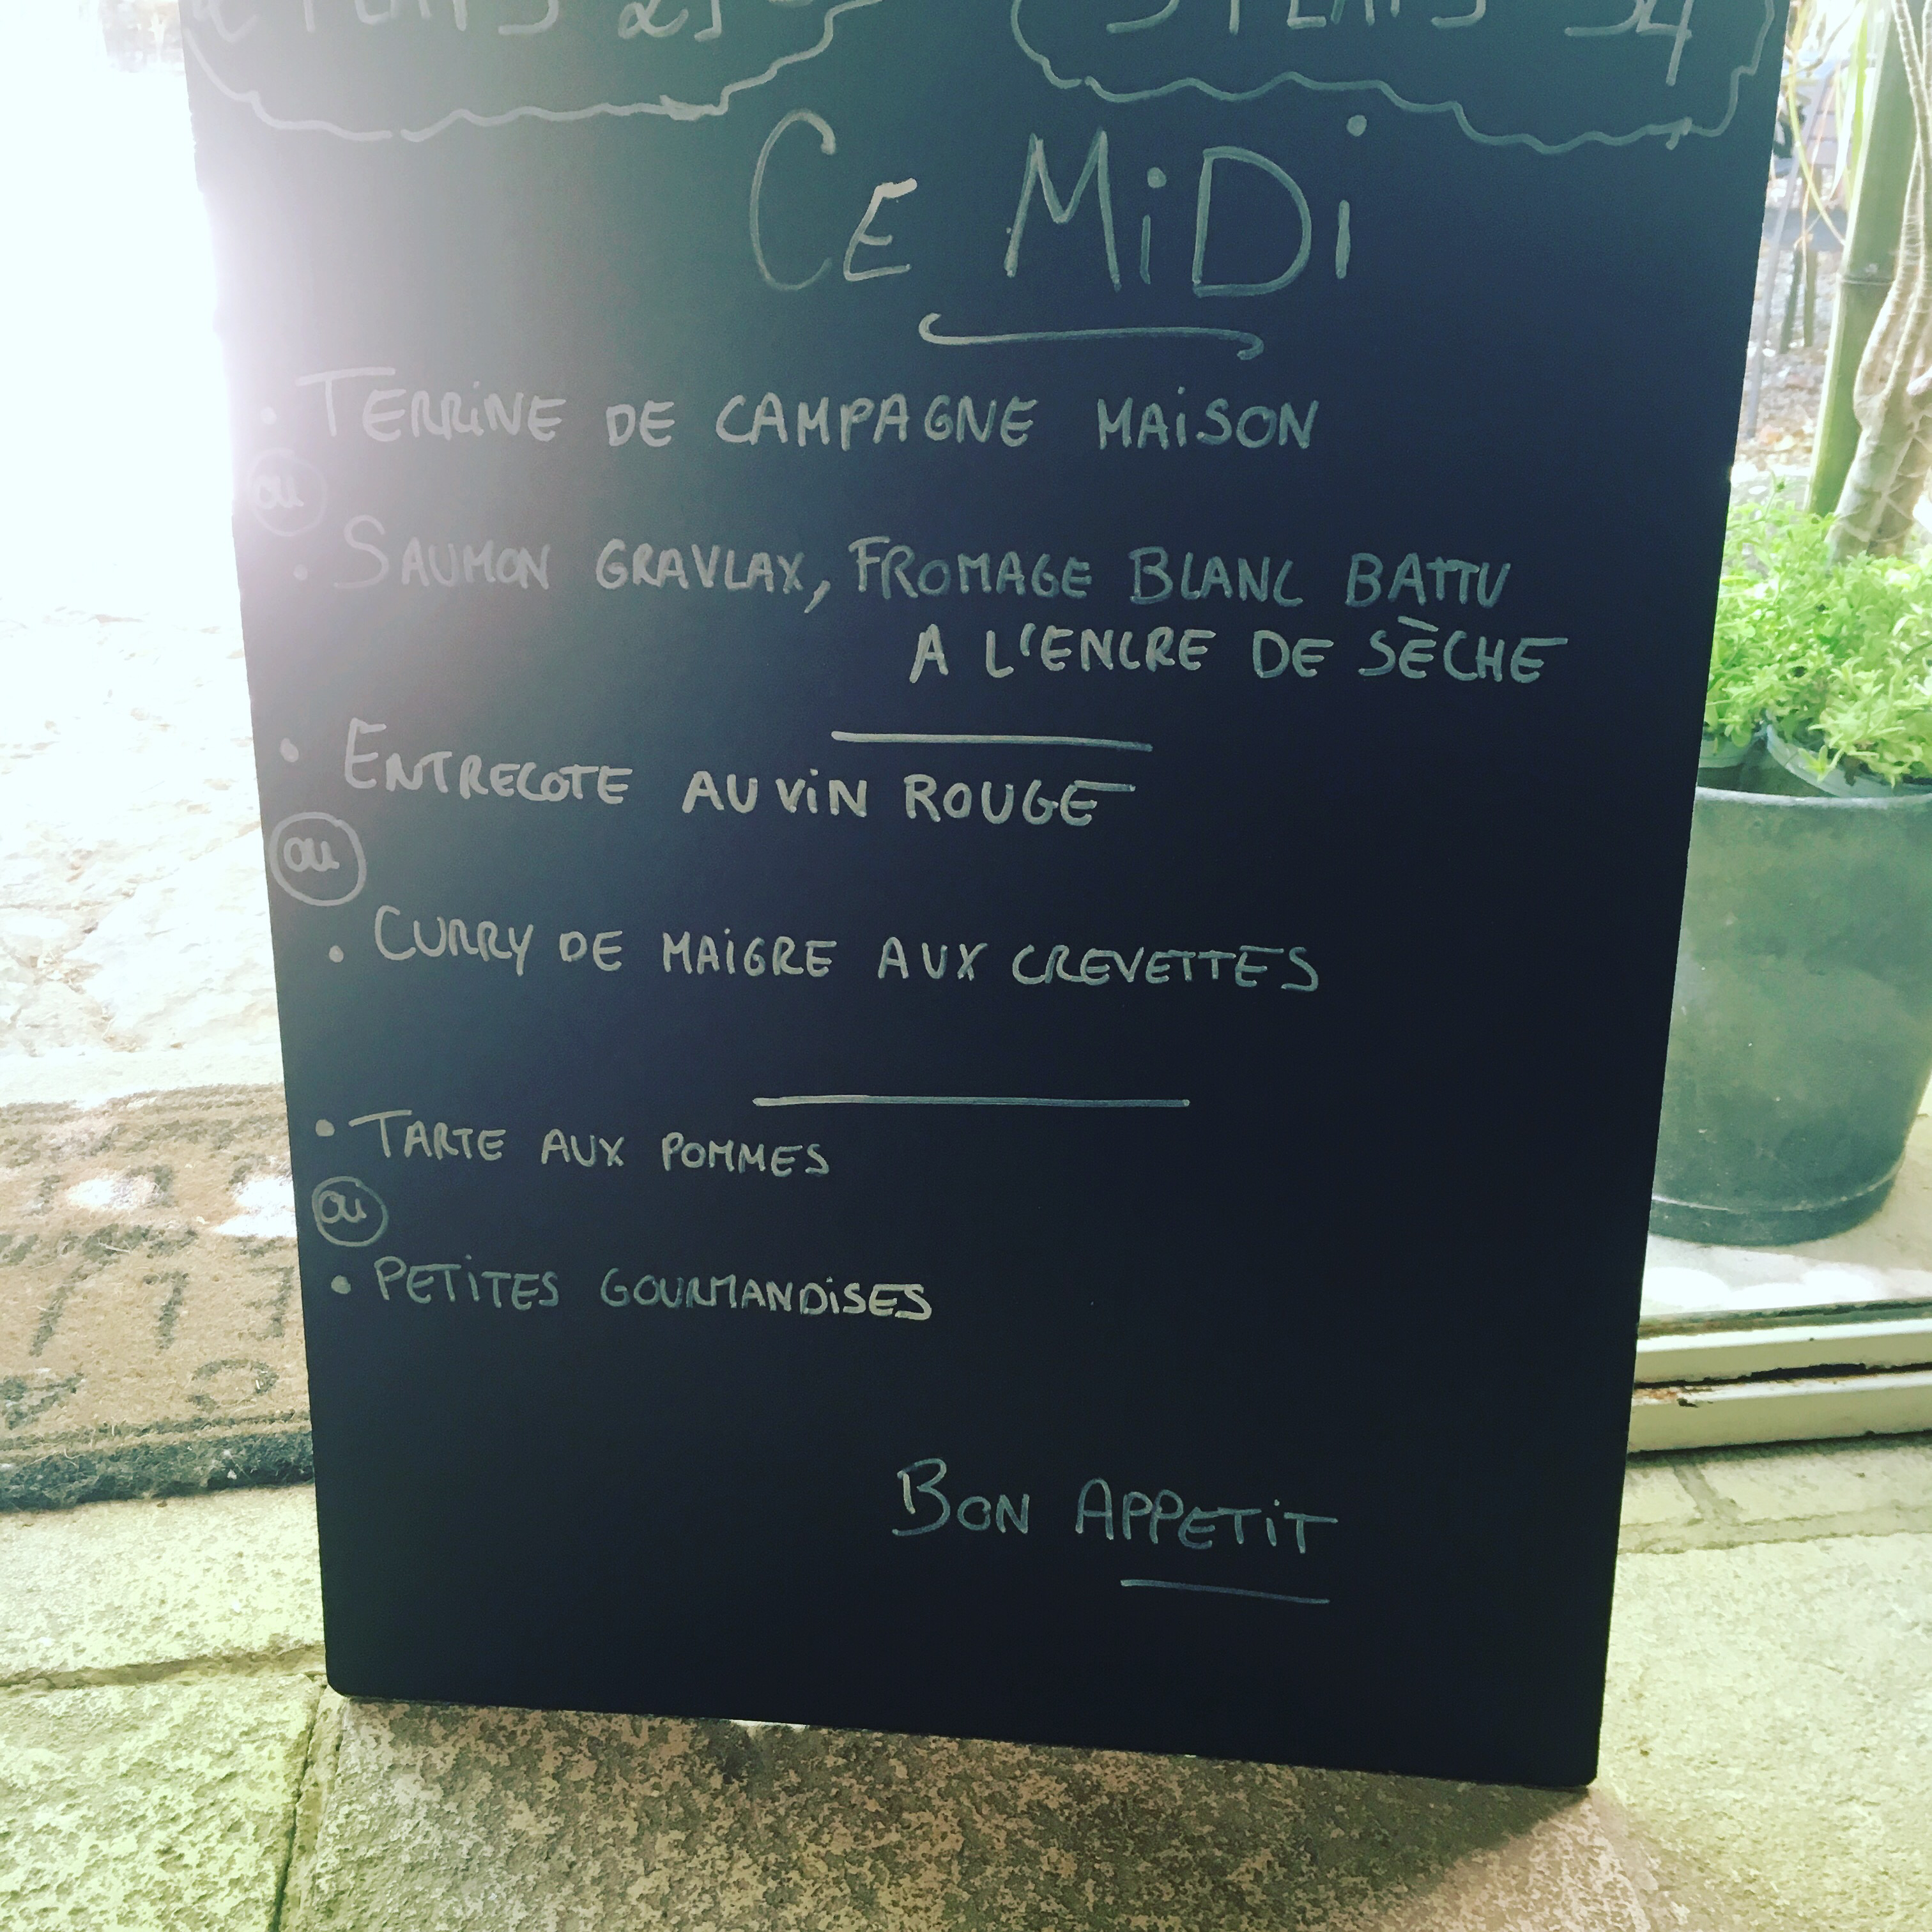 2 PLATS
3 PLATS 34
CE MiDi
• TERRiNE DE CAMPAGNE MAiSON
ou
• SAUMON GRAVLAX, FROMAGE BLANC BATTU
A L'ENCRE DE SÈCHE
• ENTRECOTE AU ViN ROUGE
ou
• CURRY DE MAiGRE AUX CREVETTES
• TARTE AUX POMMES
ou
• PETiTES GOURMANDiSES
BON APPETiT